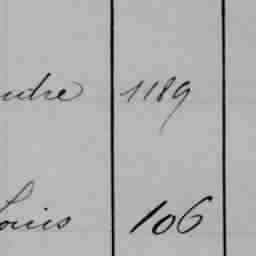 ndre 1189
Louis 106